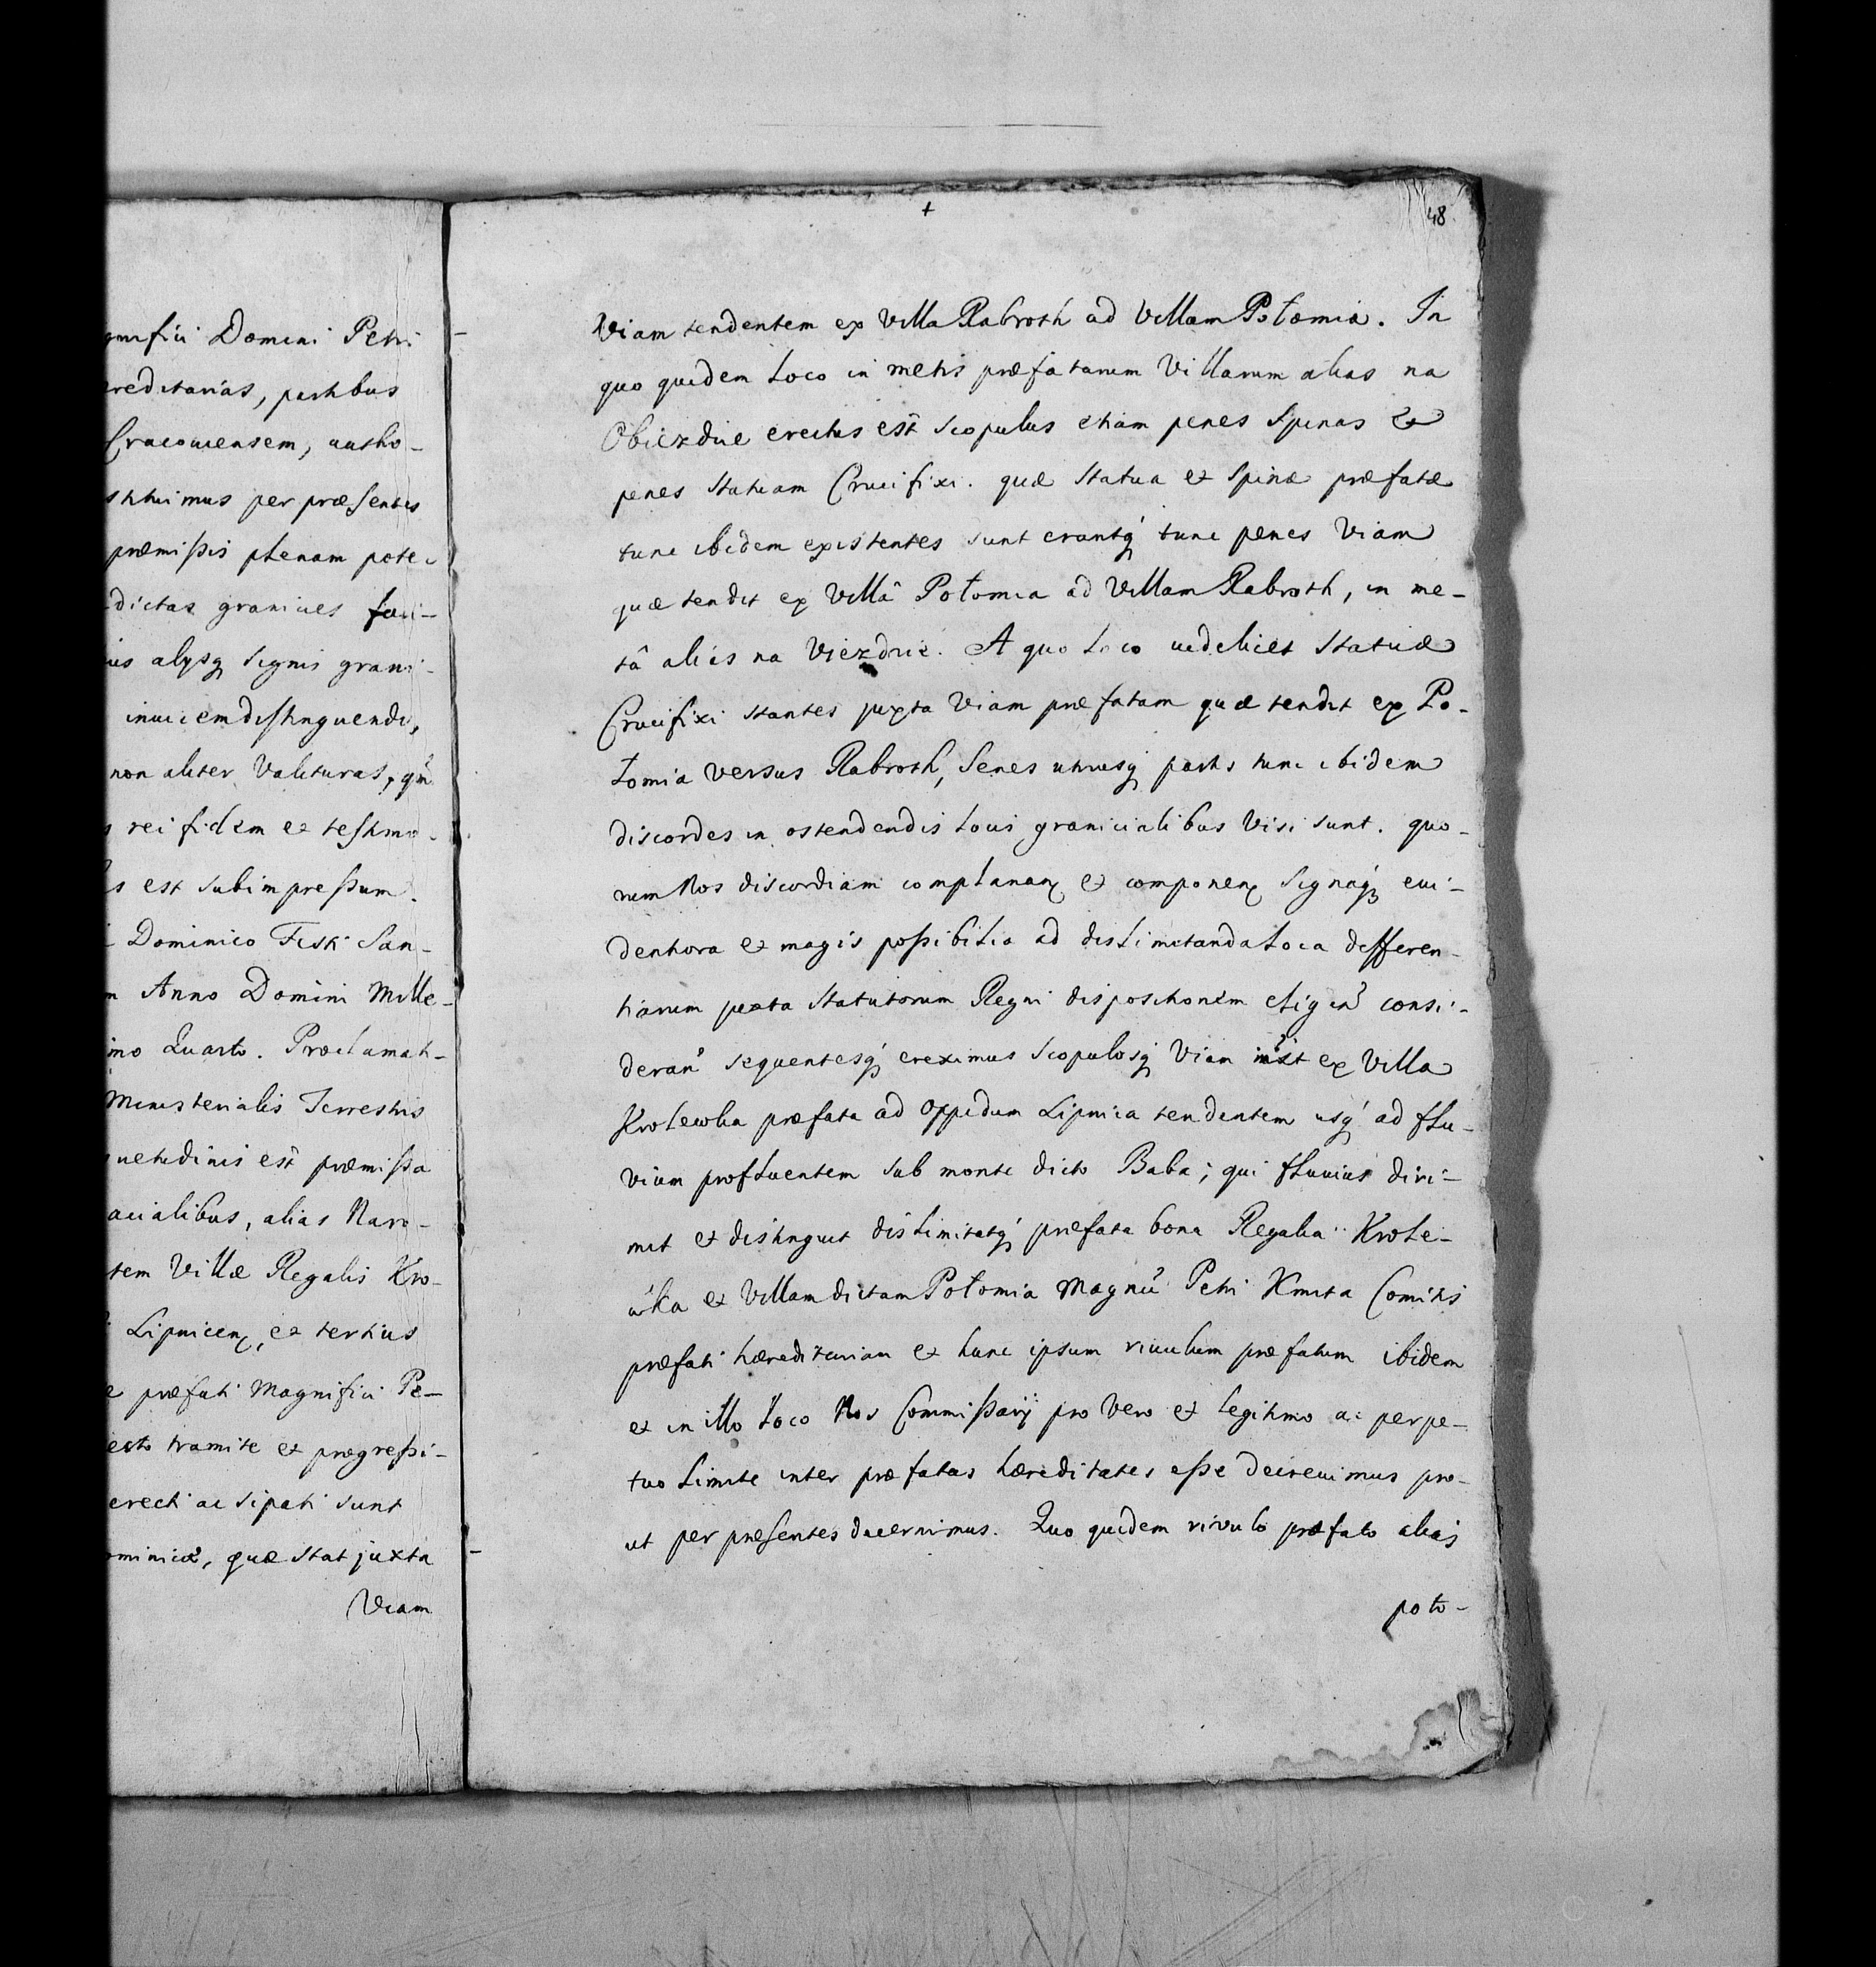 gnifici Domini Petri
ereditarias, partibus
Cracouiensem, autho-
stituimus per præsentes
præmissis plenam pote-
dictas granicies faci-
us alysq signis grani-
inuicem distinguendi,
non aliter Valituras, qm
rei fidem et testimo-
s est subimpressum.
Dominico Festi San-
m Anno Domini Mille-
imo Quarto. Proclamati-
Ministerialis Terrestris
uetudinis est præmissa
acialibus, alias Naro-
tem Villæ Regalis Kro-
Lipnicen, et tertius
e præfati Magnifici Pe-
ecto tramite et progressi-
erecti ac sipati sunt
ominicæ, quæ stat juxta
Viam
+
48
Viam tendentem ex Villa Rabroth ad Villam Połomia. In
quo quidem loco in metis præfatarum Villarum alias na
Obiezdzie erectus est scopulus etiam penes Spinas et
penes statuam Crucifixi. quæ Statua et Spinæ præfatæ
tunc ibidem existentes sunt erantq tunc penes Viam
quæ tendit ex Villâ Połomia ad Villam Rabroth, in me-
tâ aliàs na Viezdzie. A quo loco uidelicet Statuæ
Crucifixi stantes juxta Viam præfatam quæ tendit ex Po-
łomia versus Rabroth, Senes utriusq partis tunc ibidem
discordes in ostendendis locis granicialibus Visi sunt. quo-
rum Nos discordiam complanan et componen Signaq eui-
dentiora et magis possibilia ad dislimitanda loca differen-
tiarum juxta Statutorum Regni dispositionem consi-
deran sequentesq ereximus scopulosq Viam ex Villa
Krolewka præfata ad Oppidum Lipnica tendentem usq ad flu-
vium profluentem sub monte dicto Baba; qui fluuius diri-
mit et distinguit dislimitatq præfata bona Regalia Krole-
wka et Villam dictam Połomia Magnci Petri Kmita Comitis
præfati hæreditariam et hunc ipsum riuulum præfatum ibidem
et in illo loco Nos Commissarij pro Vero et legitimo ac perpe-
tuo limite inter præfatas hæreditates esse decreuimus pro-
ut per præsentes decernimus. Quo quidem rivulo præfato alias
poto-